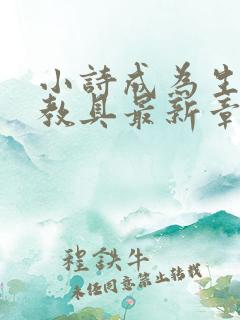 小詩戒為生
教具最新章
程鉄牛
未经同意禁止转载